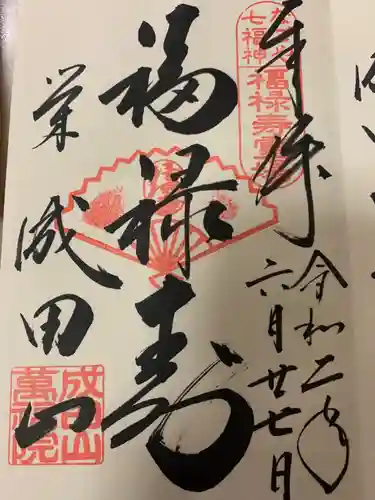 奉拝
令和二年
六月廿七日
七福神
福禄寿
福禄寿
栄 成田山
成田山
萬福院